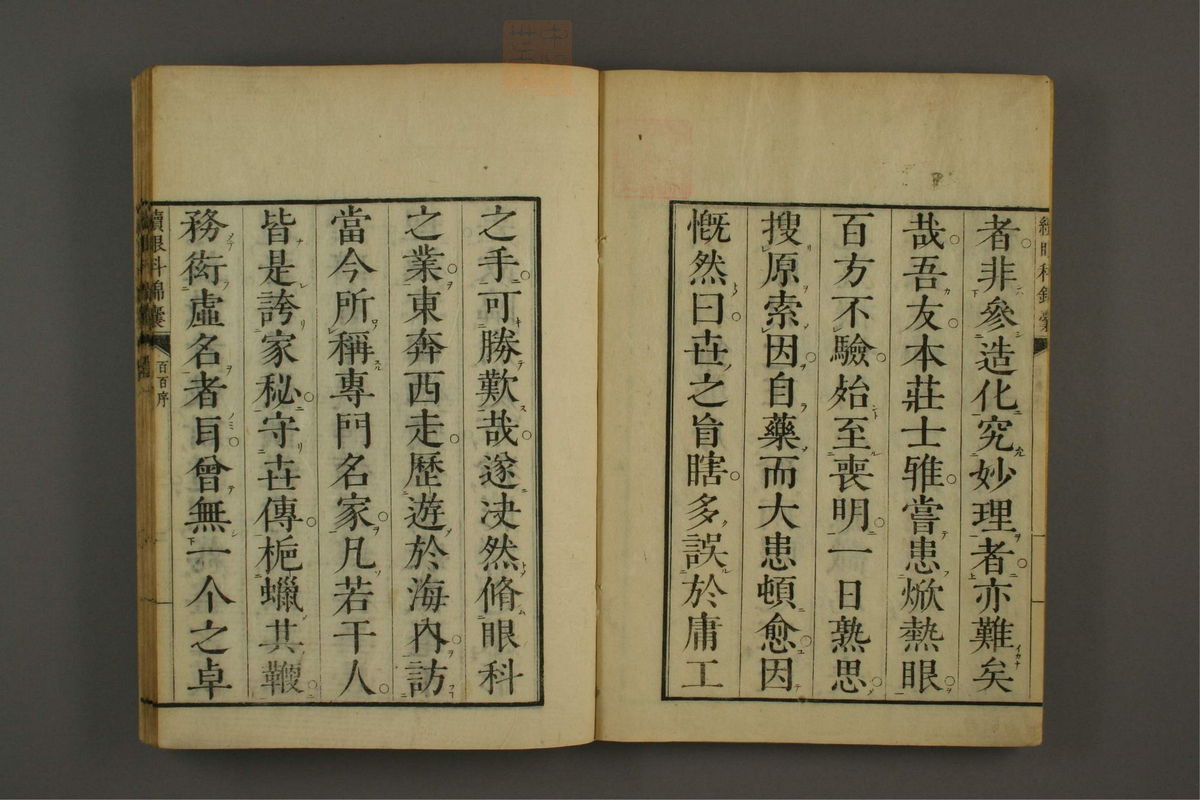 者非參造化究妙理者亦難矣
哉吾友本莊士雅嘗患焮熱眼
百方不驗始至喪明一日熟思
搜原索因自藥而大患頓愈因
慨然曰世之盲瞎多誤於庸工
之手可勝歎哉遂決然脩眼科
之業東奔西走歷遊於海內訪
當今所稱專門名家凡若干人
皆是誇家秘守世傳梔蠟其鞭
務衒虛名者耳曾無一个之卓
續眼科錦囊
百百序